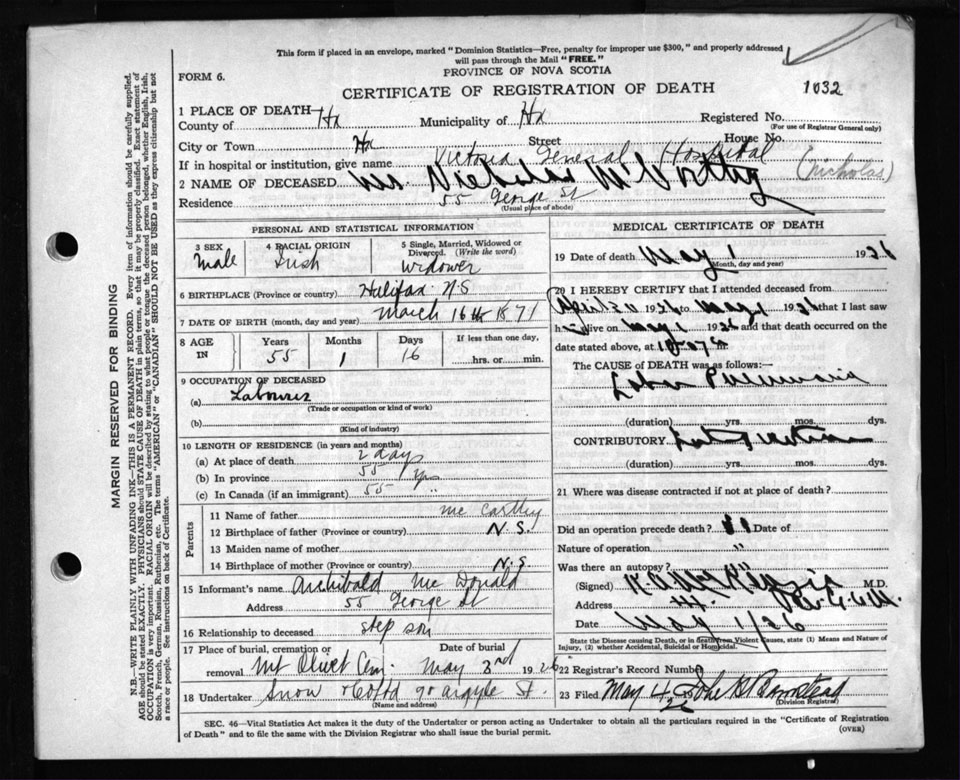 This form if placed in an envelope, marked "Dominion Statistics—Free, penalty for improper use $300," and properly addressed
will pass through the Mail "FREE."
FORM 6.
PROVINCE OF NOVA SCOTIA
CERTIFICATE OF REGISTRATION OF DEATH
1032
1 PLACE OF DEATH
County of Hx Municipality of Hx Registered No.
(For use of Registrar General only)
City or Town Hx Street House No.
If in hospital or institution, give name Victoria General Hospital
2 NAME OF DECEASED Mr. Nicholas (Nicholas)
Residence 55 George St
(Usual place of abode)
PERSONAL AND STATISTICAL INFORMATION
3 SEX Male
4 RACIAL ORIGIN Irish
5 Single, Married, Widowed or Divorced. (Write the word) Widower
6 BIRTHPLACE (Province or country) Halifax N.S
7 DATE OF BIRTH (month, day and year) March 16th 1871
8 AGE IN Years 55 Months 1 Days 16 If less than one day, hrs. or min.
9 OCCUPATION OF DECEASED
(a) Labourer
(Trade or occupation or kind of work)
(b)
(Kind of industry)
10 LENGTH OF RESIDENCE (in years and months)
(a) At place of death 2 days
(b) In province 55 yrs
(c) In Canada (if an immigrant) 55 "
Parents
11 Name of father Mc Carthy
12 Birthplace of father (Province or country) N.S.
13 Maiden name of mother
14 Birthplace of mother (Province or country) N.S
15 Informant's name Archibald Mc Donald
Address 55 George St
16 Relationship to deceased step son
17 Place of burial, cremation or removal Mt Olivet Cem. Date of burial May 3rd 1926
18 Undertaker Snow & Co Ltd 90 Argyle St.
(Name and address)
MEDICAL CERTIFICATE OF DEATH
19 Date of death May 1 1926
(Month, day and year)
20 I HEREBY CERTIFY that I attended deceased from
April 30 1926 to May 1 1926 that I last saw
h im alive on May 1 1926 and that death occurred on the
date stated above, at
The CAUSE OF DEATH was as follows:—
Lobar Pneumonia
(duration) yrs. mos. dys.
CONTRIBUTORY
(duration) yrs. mos. dys.
21 Where was disease contracted if not at place of death?
Did an operation precede death? Date of
Nature of operation "
Was there an autopsy?
(Signed) M.D.
Address
Date May 1/26
State the Disease causing Death, or in death from Violent Causes, state (1) Means and Nature of
Injury, (2) whether Accidental, Suicidal or Homicidal.
22 Registrar's Record Number
23 Filed May 4 26
(Division Registrar)
SEC. 46—Vital Statistics Act makes it the duty of the Undertaker or person acting as Undertaker to obtain all the particulars required in the "Certificate of Registration
of Death" and to file the same with the Division Registrar who shall issue the burial permit.
(OVER)
MARGIN RESERVED FOR BINDING
N.B.—WRITE PLAINLY WITH UNFADING INK—THIS IS A PERMANENT RECORD. Every item of information should be carefully supplied.
AGE should be stated EXACTLY. PHYSICIANS should STATE CAUSE OF DEATH in plain terms, so that it may be properly classified. Exact statement of
OCCUPATION is very important. RACIAL ORIGIN will be described by stating to what people or tongue the deceased person belonged, whether English, Irish,
Scotch, French, German, Russian, Ruthenian, etc. The terms "AMERICAN" or "CANADIAN" SHOULD NOT BE USED as they express citizenship but not
a race or people. See instructions on back of Certificate.